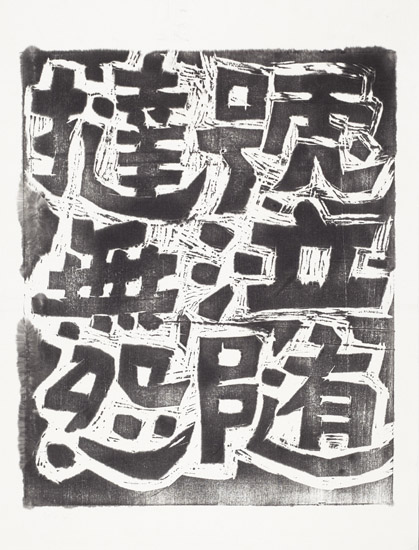 號泣隨
撻無怨